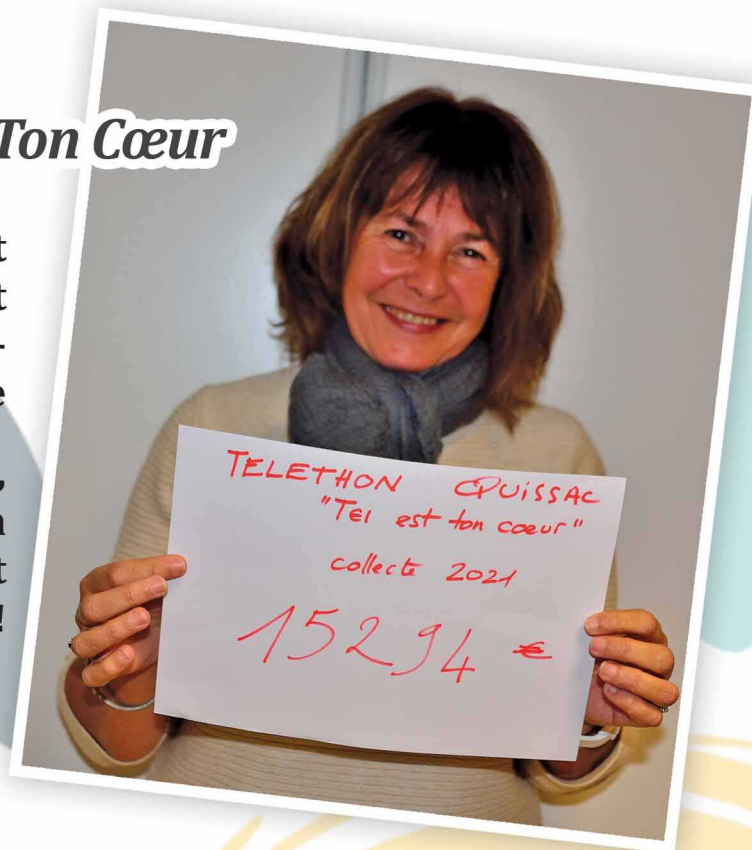 Ton Cœur
t
t
-
e
,
n
t
!
TELETHON QUISSAC
"Tel est ton coeur"
collecte 2021
15294 €